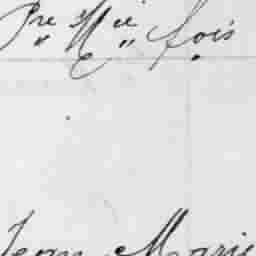 Pre Mee fois
Jean Marie